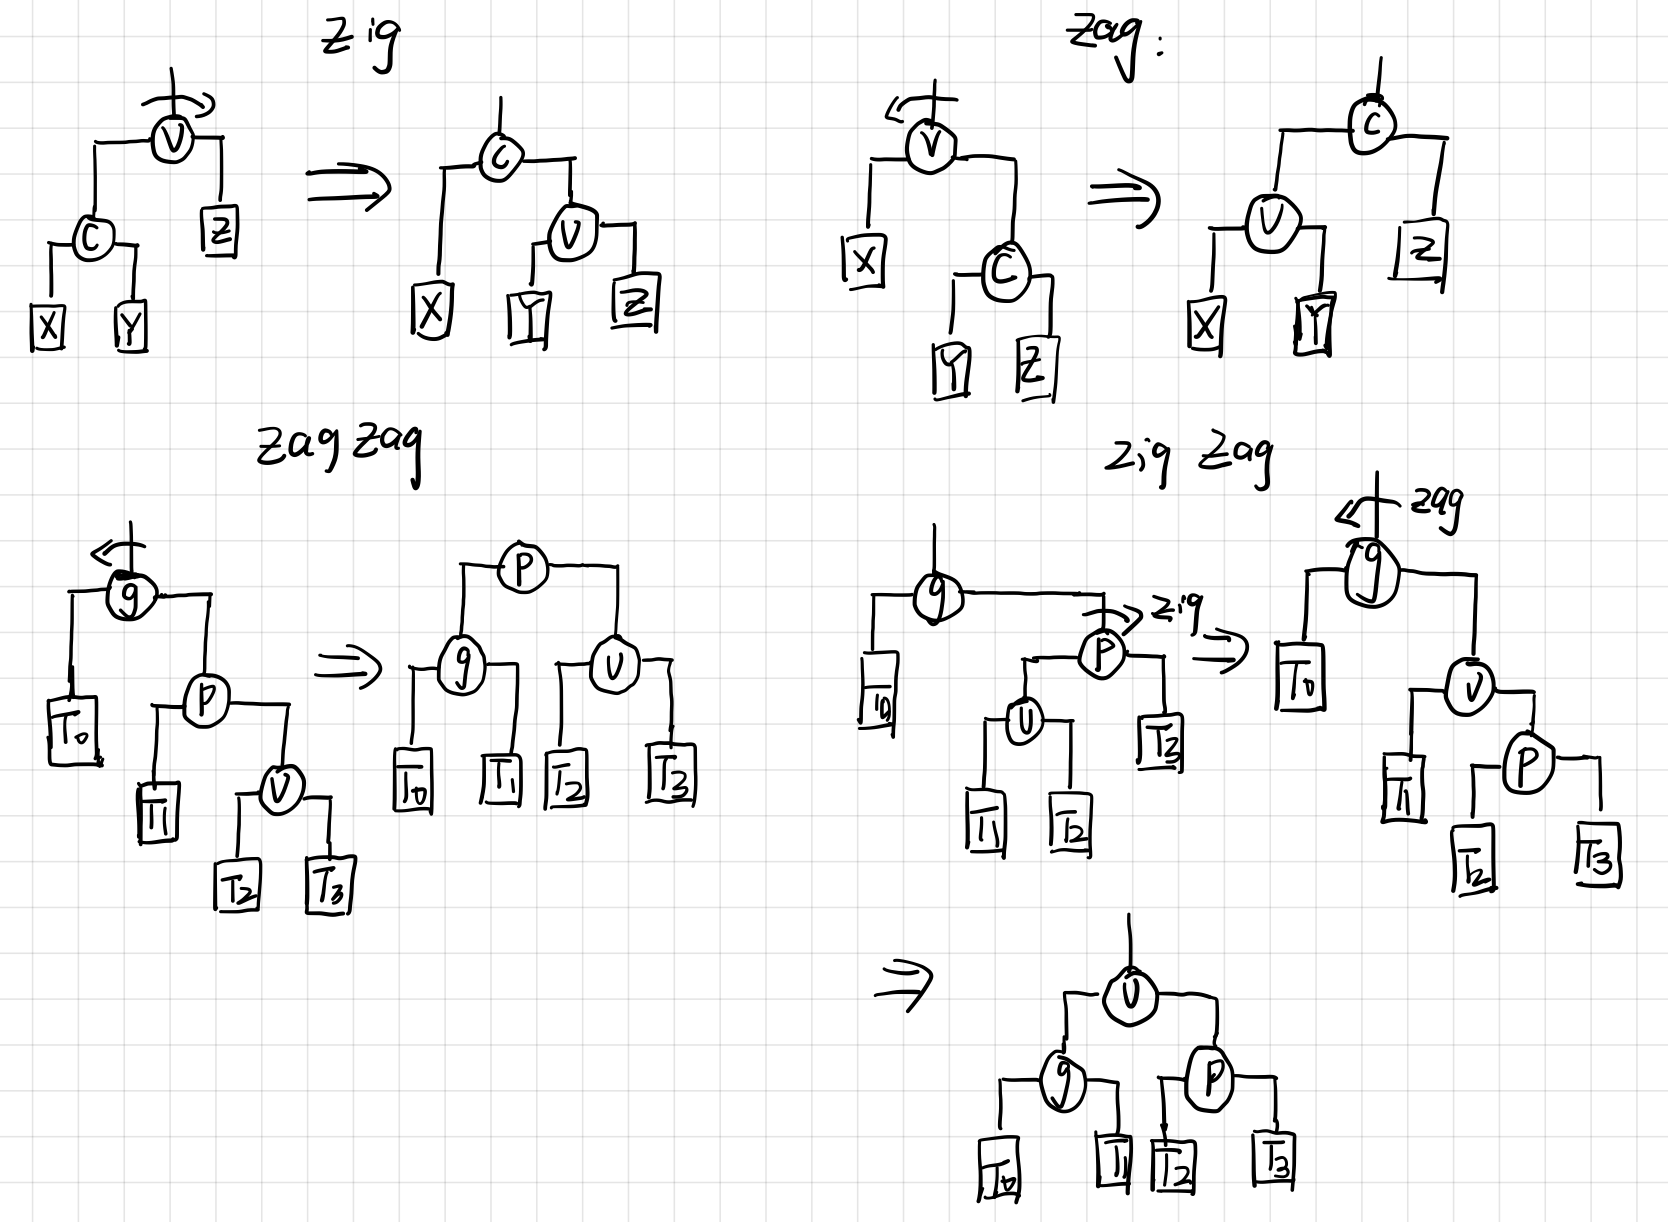 Zig
V
C
Z
X
Y
C
V
X
Y
Z
Zag:
V
X
C
Y
Z
C
V
Z
X
Y
Zag Zag
g
P
T0
T1
V
T2
T3
P
g
V
T0
T1
T2
T3
Zig Zag
g
zig
P
T0
V
T3
T1
T2
zag
g
T0
V
T1
P
T2
T3
V
g
P
T0
T1
T2
T3